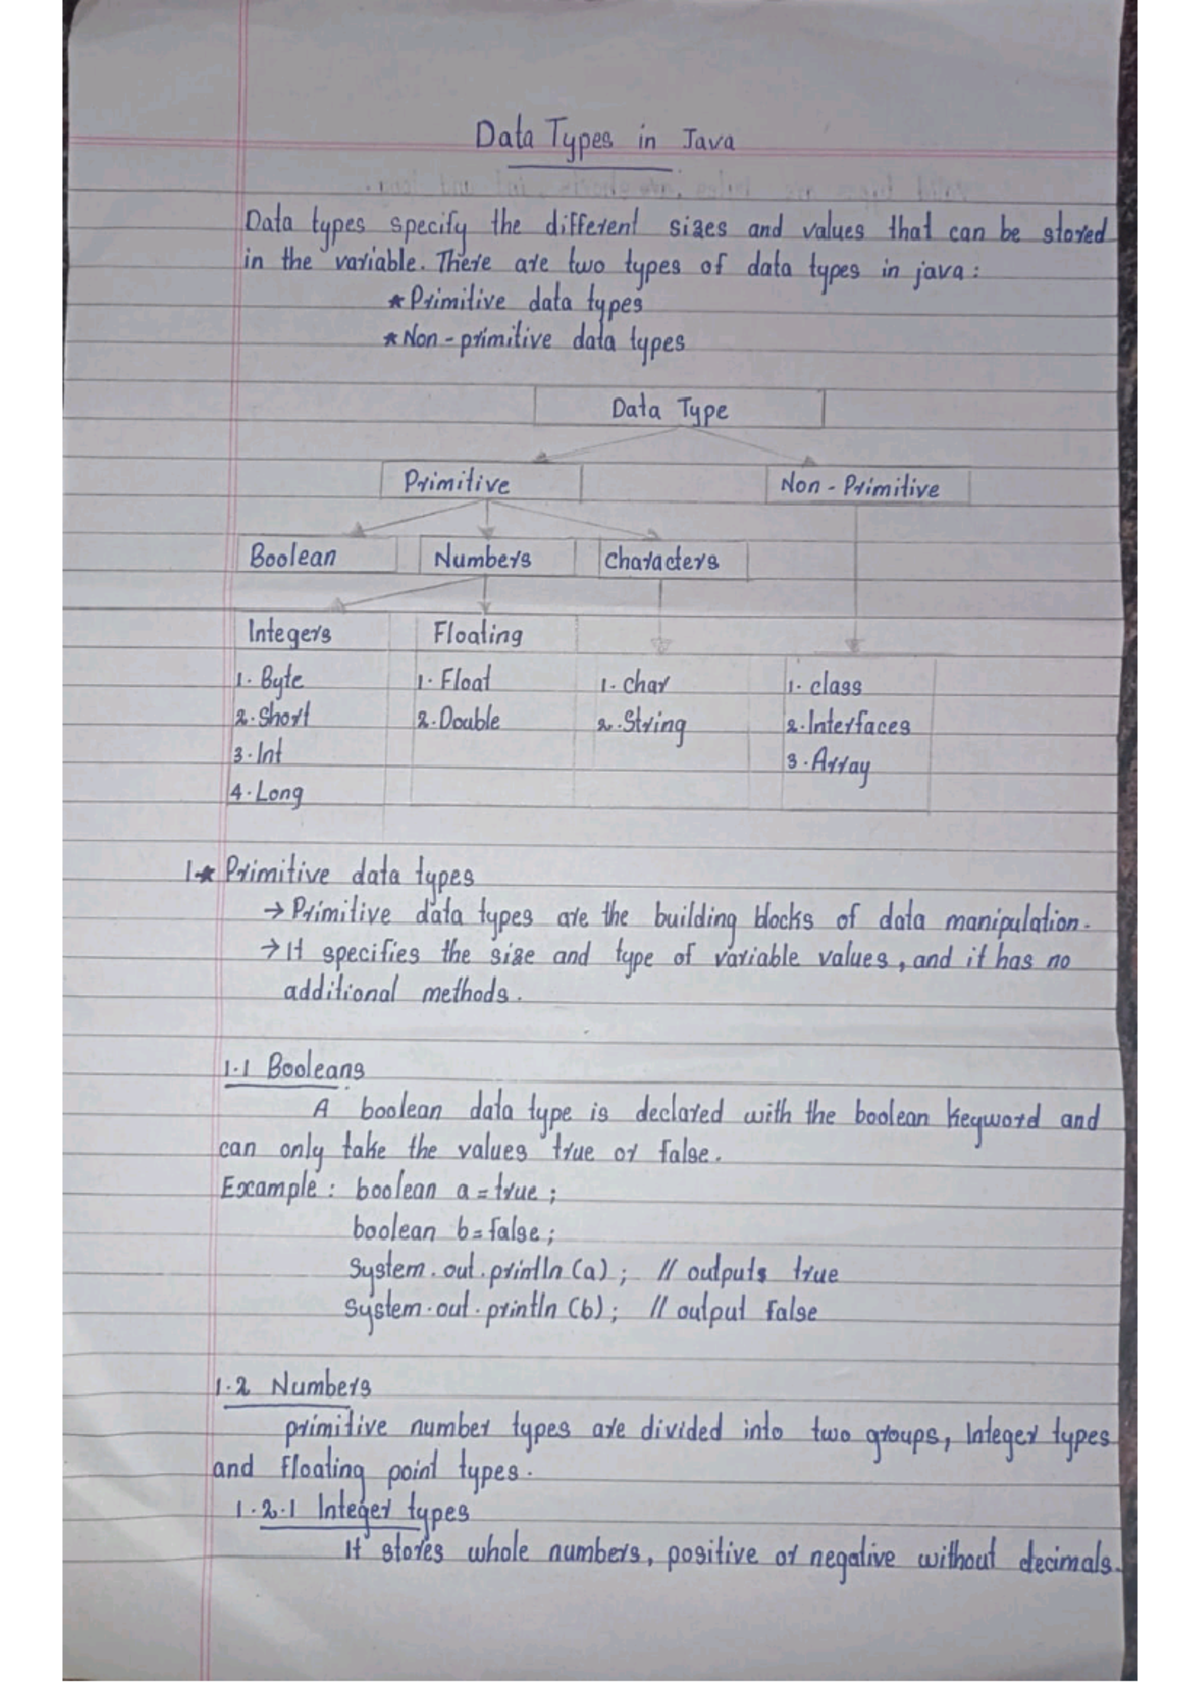 Data Types in Java
Data types specify the different sizes and values that can be stored
in the variable. There are two types of data types in java:
* Primitive data types
* Non-primitive data types
Data Type
Primitive Non-Primitive
Boolean Numbers Characters
Integers Floating
1. Byte 1. Float 1. char 1. class
2. Short 2. Double 2. String 2. Interfaces
3. Int 3. Array
4. Long
1* Primitive data types
→ Primitive data types are the building blocks of data manipulation.
→ It specifies the size and type of variable values, and it has no
additional methods.
1.1 Booleans
A boolean data type is declared with the boolean keyword and
can only take the values true or false.
Example: boolean a = true;
boolean b = false;
System.out.println(a); // outputs true
System.out.println(b); // output false
1.2 Numbers
primitive number types are divided into two groups, Integer types
and Floating point types.
1.2.1 Integer types
It stores whole numbers, positive or negative without decimals.